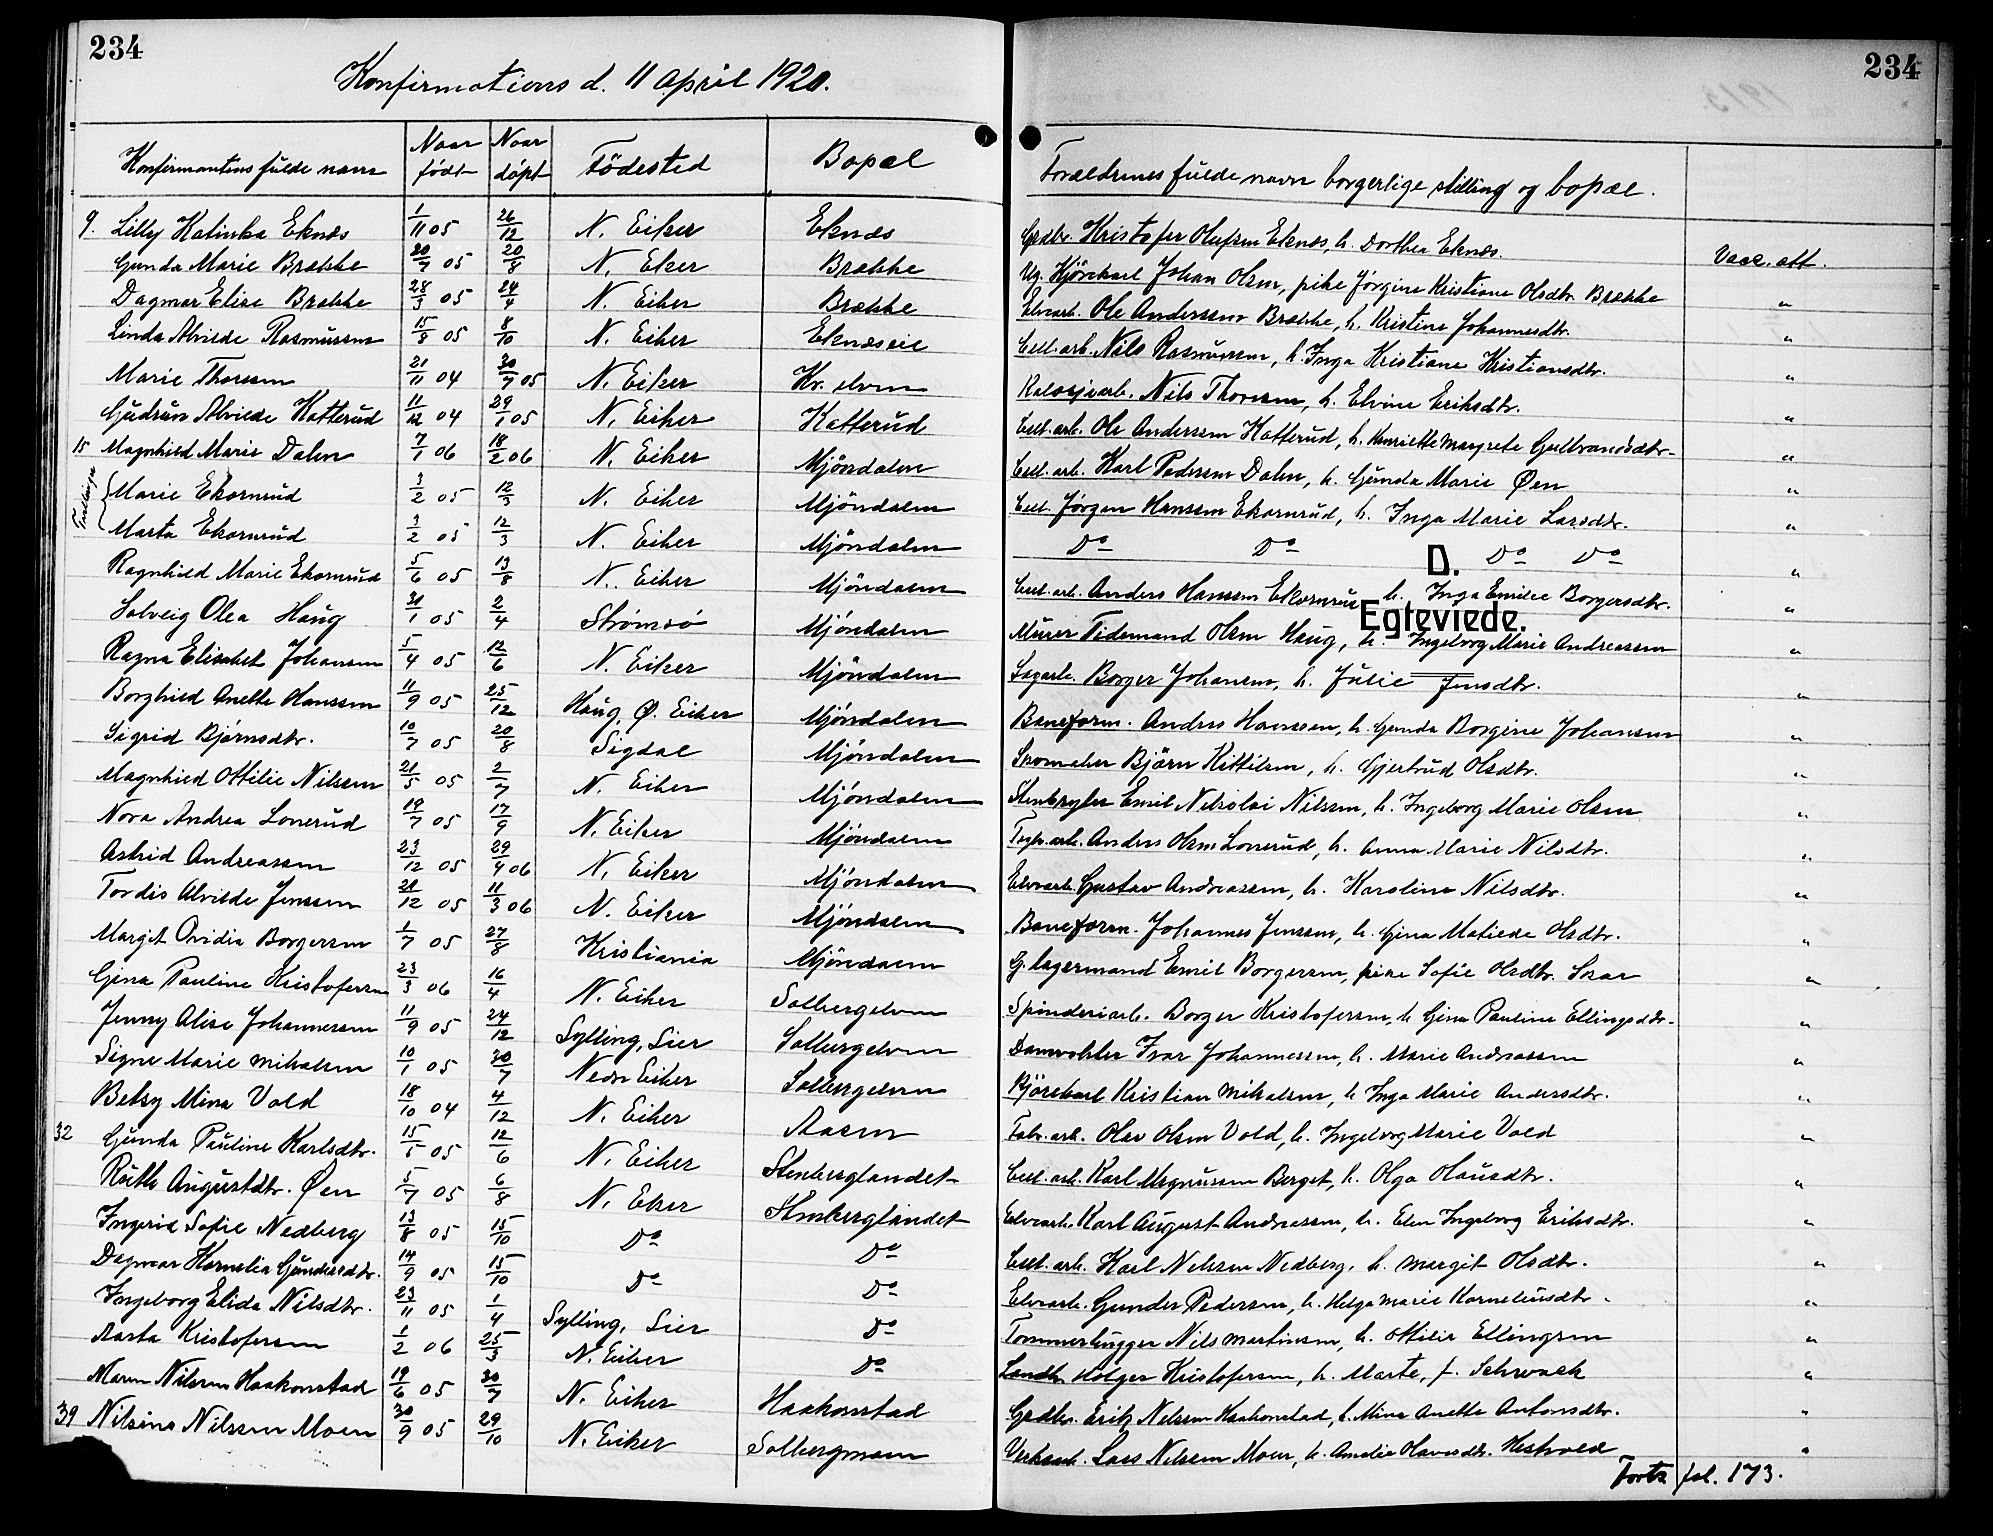 234
234
Konfirmations d. 11 april 1920.
Konfirmantens fulde navn | Naar født | Naar döpt | Födested | Bopæl | Forældrenes fulde navn borgerlige stilling og bopæl.
9. Lilly Katinka Eknæs | 1/11 05 | 26/12 | N. Eiker | Eknæs | Gbdbr. Kristofer Olufsen Eknæs, h. Dorthea Eknæs. | Vacc. att.
Gunda Marie Brække | 20/7 05 | 20/8 | N. Eker | Brække | Ug. Kjörekarl Johan Olsen, pike Jørgine Kristiane Olsdtr. Brække | "
Dagmar Elise Brække | 28/3 05 | 24/4 | N. Eiker | Brække | Elvearb. Ole Anderssen Brække, h. Kristine Johannesdtr. | "
Linda Alvilde Rasmussen | 15/8 05 | 8/10 | N. Eiker | Eknæseie | Cell. arb. Nils Rasmussen, h. Inga Kristiane Kristiansdtr. | "
Marie Thorssen | 21/11 04 | 30/7 05 | N. Eiker | Kr. elven | Nils Thorssen, h. Elvine Eriksdtr. | "
Gudrun Alvilde Katterud | 11/12 04 | 29/1 05 | N. Eiker | Katterud | Cell. arb. Ole Anderssen Katterud, h. Henriette Margrete Gulbrandsdtr. | "
15 Magnhild Marie Dalen | 7/1 06 | 18/2 06 | N. Eiker | Mjöndalen | Cell. arb. Karl Pederssen Dalen, h. Gunda Marie Øen | "
Tvillinger { Marie Ekornrud | 3/2 05 | 12/3 | N. Eiker | Mjöndalen | Cell. Jørgen Hanssen Ekornrud, h. Inga Marie Larsdtr. | "
Marta Ekornrud | 3/2 05 | 12/3 | N. Eiker | Mjöndalen | Do Do D. Do Do | "
Ragnhild Marie Ekornrud | 5/6 05 | 13/8 | N. Eiker | Mjöndalen | Cell. arb. Anders Hanssen Ekornrud h. Inga Emilie Borgersdtr. | "
Egteviede.
Solveig Olea Haug | 31/1 05 | 2/4 | Strømsö | Mjöndalen | Murer Tidemand Olsen Haug, h. Ingeborg Marie Andreassen | "
Ragna Elisabet Johansen | 5/4 05 | 12/6 | N. Eiker | Mjöndalen | Sagarb. Borger Johansen, h. Julie Jensdtr. | "
Borghild Anette Hanssen | 11/9 05 | 25/12 | Haug, Ø. Eiker | Mjöndalen | Baneform. Anders Hanssen, h. Gunda Borgine Johansen | "
Sigrid Bjørnsdtr. | 10/7 05 | 20/8 | Sigdal | Mjöndalen | Björn Kittilsen, h. Gjertrud Olsdtr. | "
Magnhild Ottilie Nilssen | 21/5 05 | 2/7 | N. Eiker | Mjöndalen | Emil Nikolai Nilssen, h. Ingeborg Marie Olsen | "
Nora Andrea Lonerud | 19/7 05 | 17/9 | N. Eiker | Mjöndalen | Anders Olsen Lonerud, h. Anna Marie Nilsdtr. | "
Astrid Andreassen | 23/12 05 | 29/4 06 | N. Eiker | Mjöndalen | Elvearb. Gustav Andreassen, h. Karoline Nilsdtr. | "
Tordis Alvilde Jenssen | 21/12 05 | 11/3 06 | N. Eiker | Mjöndalen | Baneform. Johannes Jenssen, h. Gina Matilde Olsdtr. | "
Margit Ovidia Borgersen | 1/7 05 | 27/8 | Kristiania | Mjöndalen | G. lagermand Emil Borgersen, pike Sofie Olsdtr. Skar | "
Gina Pauline Kristofersen | 23/3 06 | 16/4 | N. Eiker | Solbergelven | Spinderiarb. Borger Kristofersen, h. Gina Pauline Ellingsdtr. | "
Jenny Alise Johannessen | 11/9 05 | 24/12 | Sylling, Lier | Solbergelven | Damvokter Ivar Johannessen, h. Marie Andreassen | "
Signe Marie Mikalsen | 10/1 05 | 30/7 | Nedr Eiker | Solbergelven | Kjörekarl Kristian Mikalsen, h. Inga Marie Andersdtr. | "
Betsy Mina Vold | 18/10 04 | 4/12 | N. Eiker | Aasen | Fabr. arb. Olav Olsen Vold, h. Ingeborg Marie Vold | "
32 Gunda Pauline Karlsdtr. | 15/5 05 | 12/6 | N. Eiker | Stenberglandet | Cell. arb. Karl Magnussen Berget, h. Olga Olausdtr. | "
Ruth Augustdtr. Øen | 5/7 05 | 6/8 | N. Eker | Stenberglandet | Elvearb. Karl August Andreassen, h. Elen Ingeborg Eriksdtr. | "
Ingerid Sofie Nedberg | 13/8 05 | 15/10 | Do | Do | Cell. arb. Karl Nilssen Nedberg, h. Margit Olsdtr. | "
Dagmar Kornelia Gundersdtr. | 14/9 05 | 15/10 | Do | Do | Elvearb. Gunder Pedersen, h. Helga Marie Korneliusdtr. | "
Ingeborg Elida Nilsdtr. | 23/11 05 | 1/4 | Sylling, Lier | Do | Tømmerhugger Nils Martinsen, h. Ottilie Ellingsen | "
Aasta Kristofersen | 1/2 06 | 25/3 | N. Eiker | Do | Landh. Holger Kristofersen, h. Marte, f. Schwack | "
Maren Nilssen Haakonstad | 19/6 05 | 30/7 | N. Eiker | Haakonstad | Gbdbr. Erik Nilssen Haakonstad, h. Mina Anette Antonsdtr. | "
39 Nilsine Nilssen Moen | 30/9 05 | 29/10 | N. Eiker | Solbergmoen | Verksarb. Lars Nilssen Moen, h. Amalie Olavesdtr. Hestvold | "
Forts fol. 173.